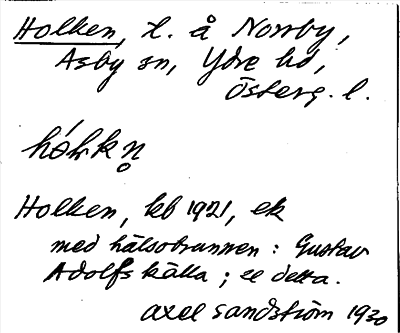 Holken, t. å Norrby,
Asby sn, Ydre hd,
Österg. l.
Holken, kb 1921, ek
med hälsobrunnen: Gustav
Adolfs källa; se detta.
Axel Sandström 1930